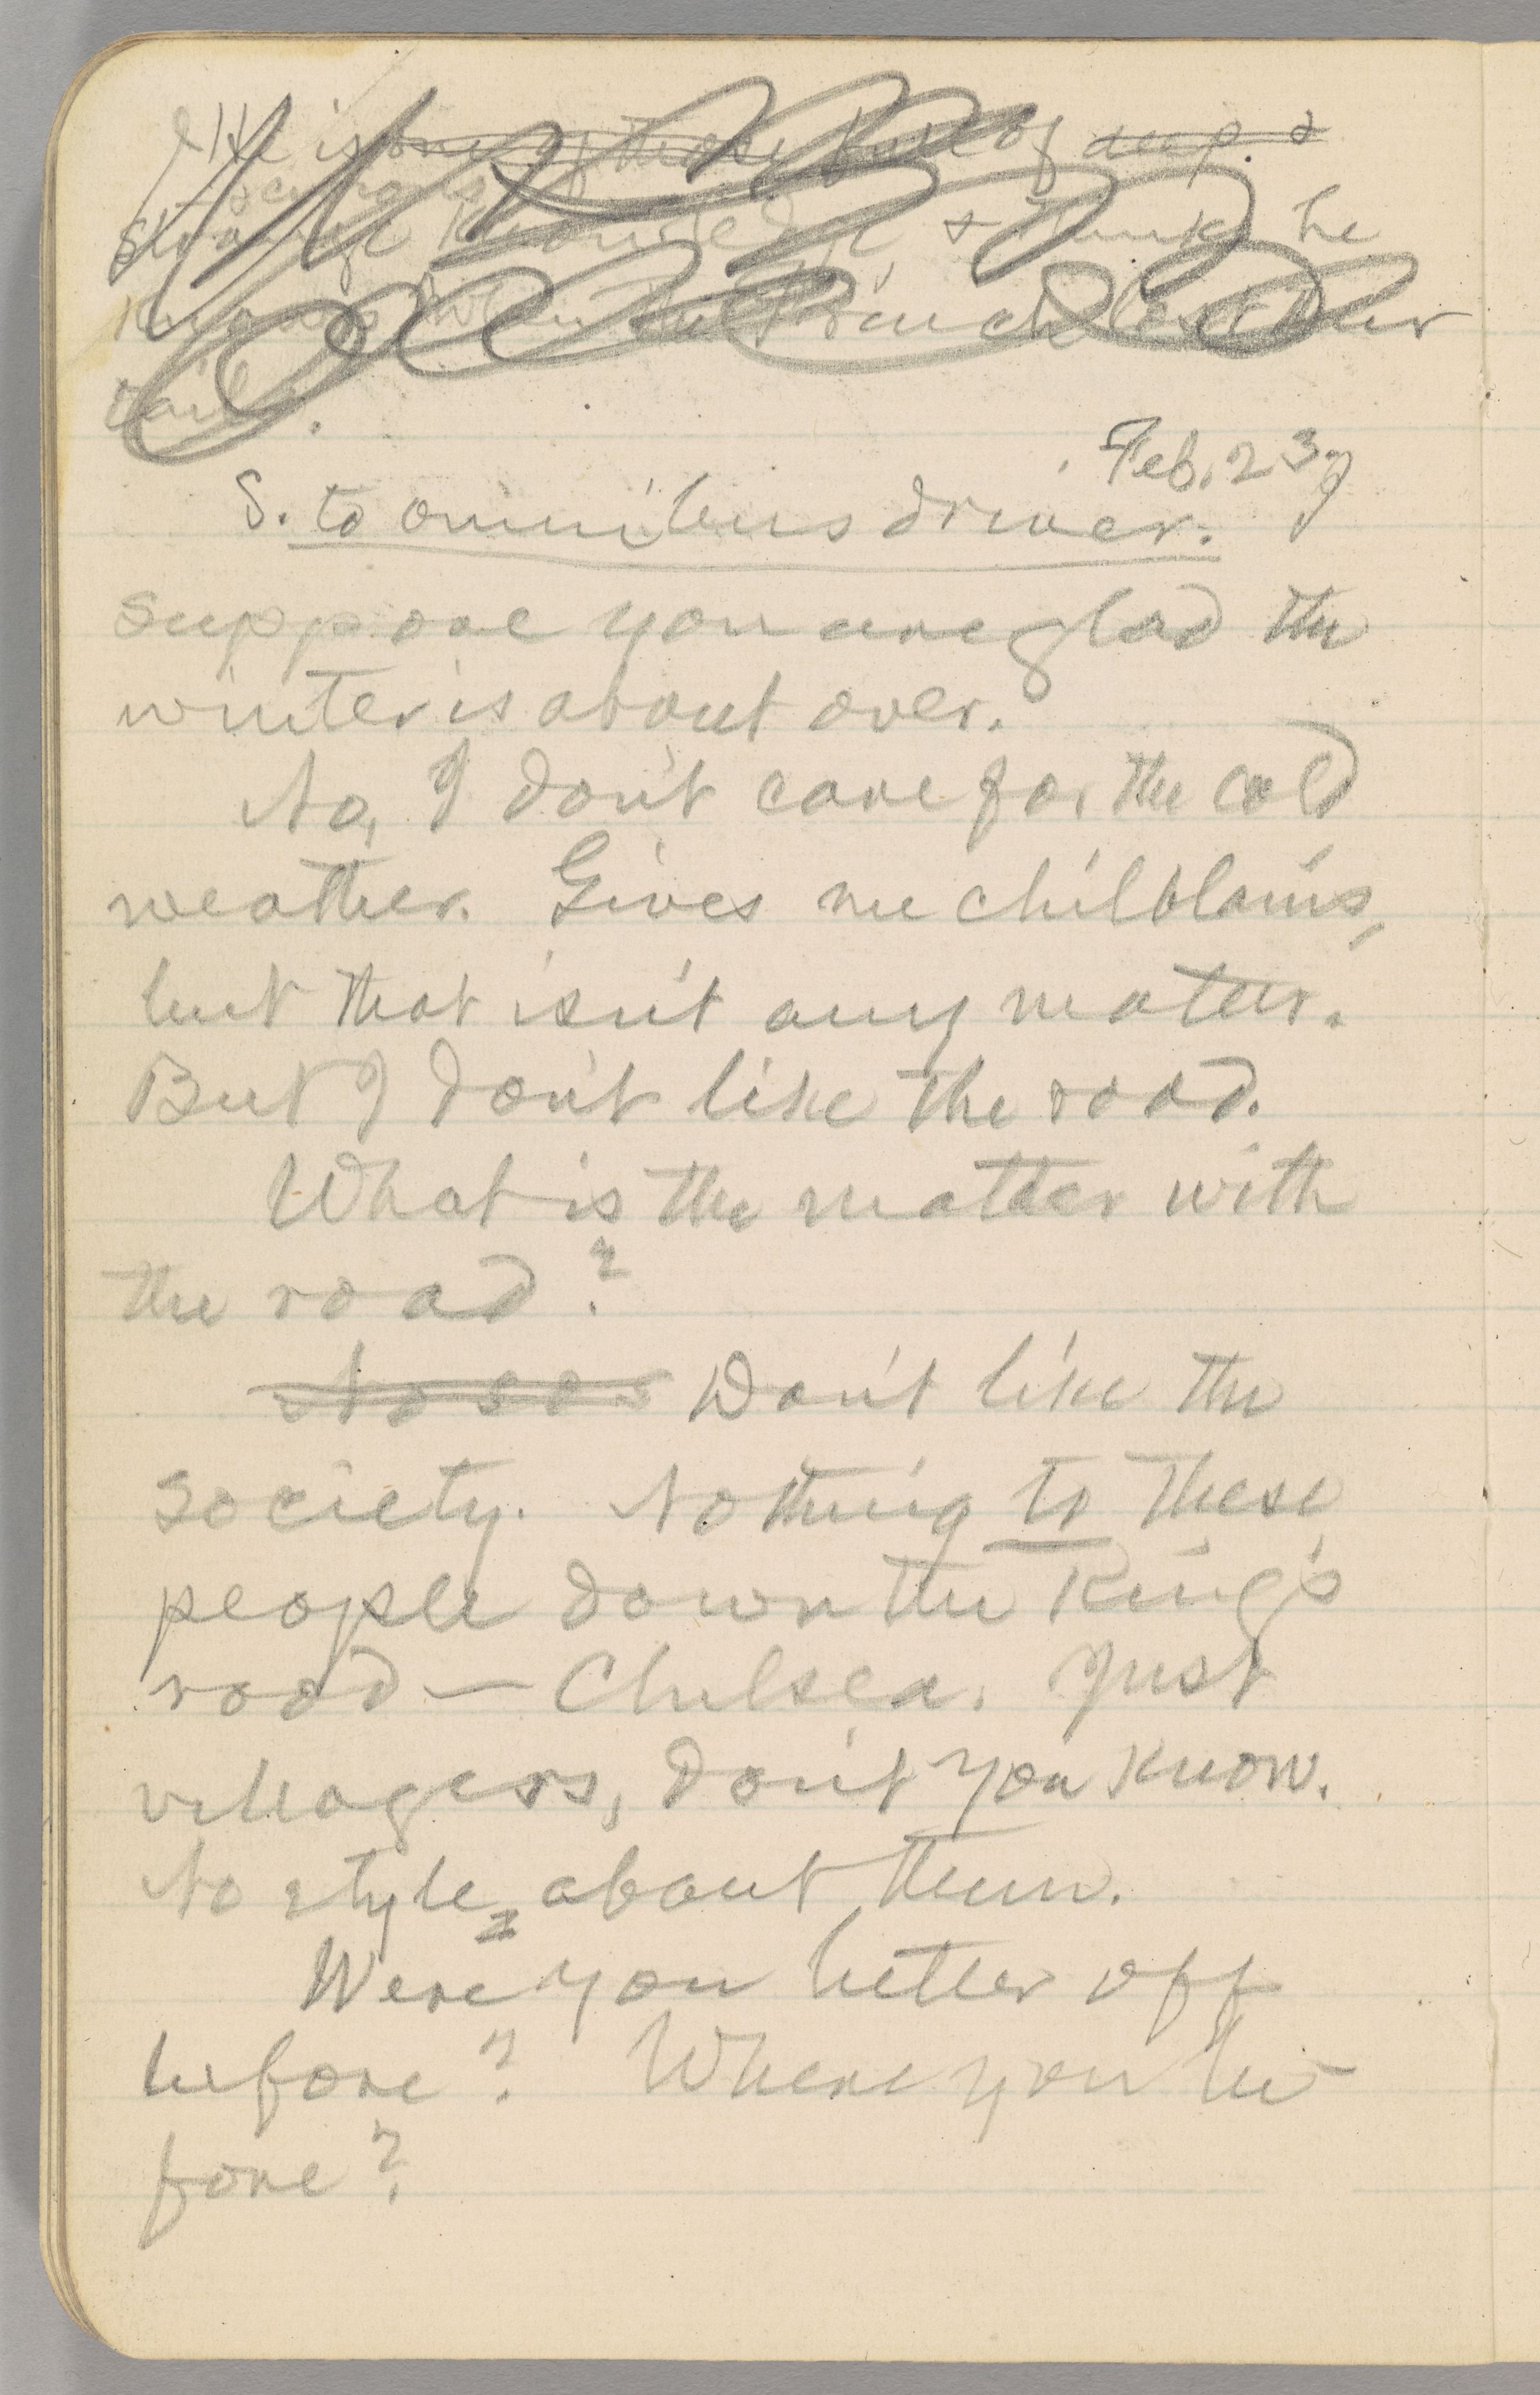 He is one of those kind of deep &
strange knowledge, & thinks he
knows when the French
tail.
Feb. 23,
S. to omnibus driver.
Suppose you are glad the
winter is about over.
No, I don't care for the cold
weather. Gives me chilblains,
but that isn't any matter.
But I don't like the road.
What is the matter with
the road?
Don't like the
society. Nothing to these
people down the King's
road — Chelsea. Just
villagers, don't you know.
No style about them.
Were you better off
before? Where you be-
fore?